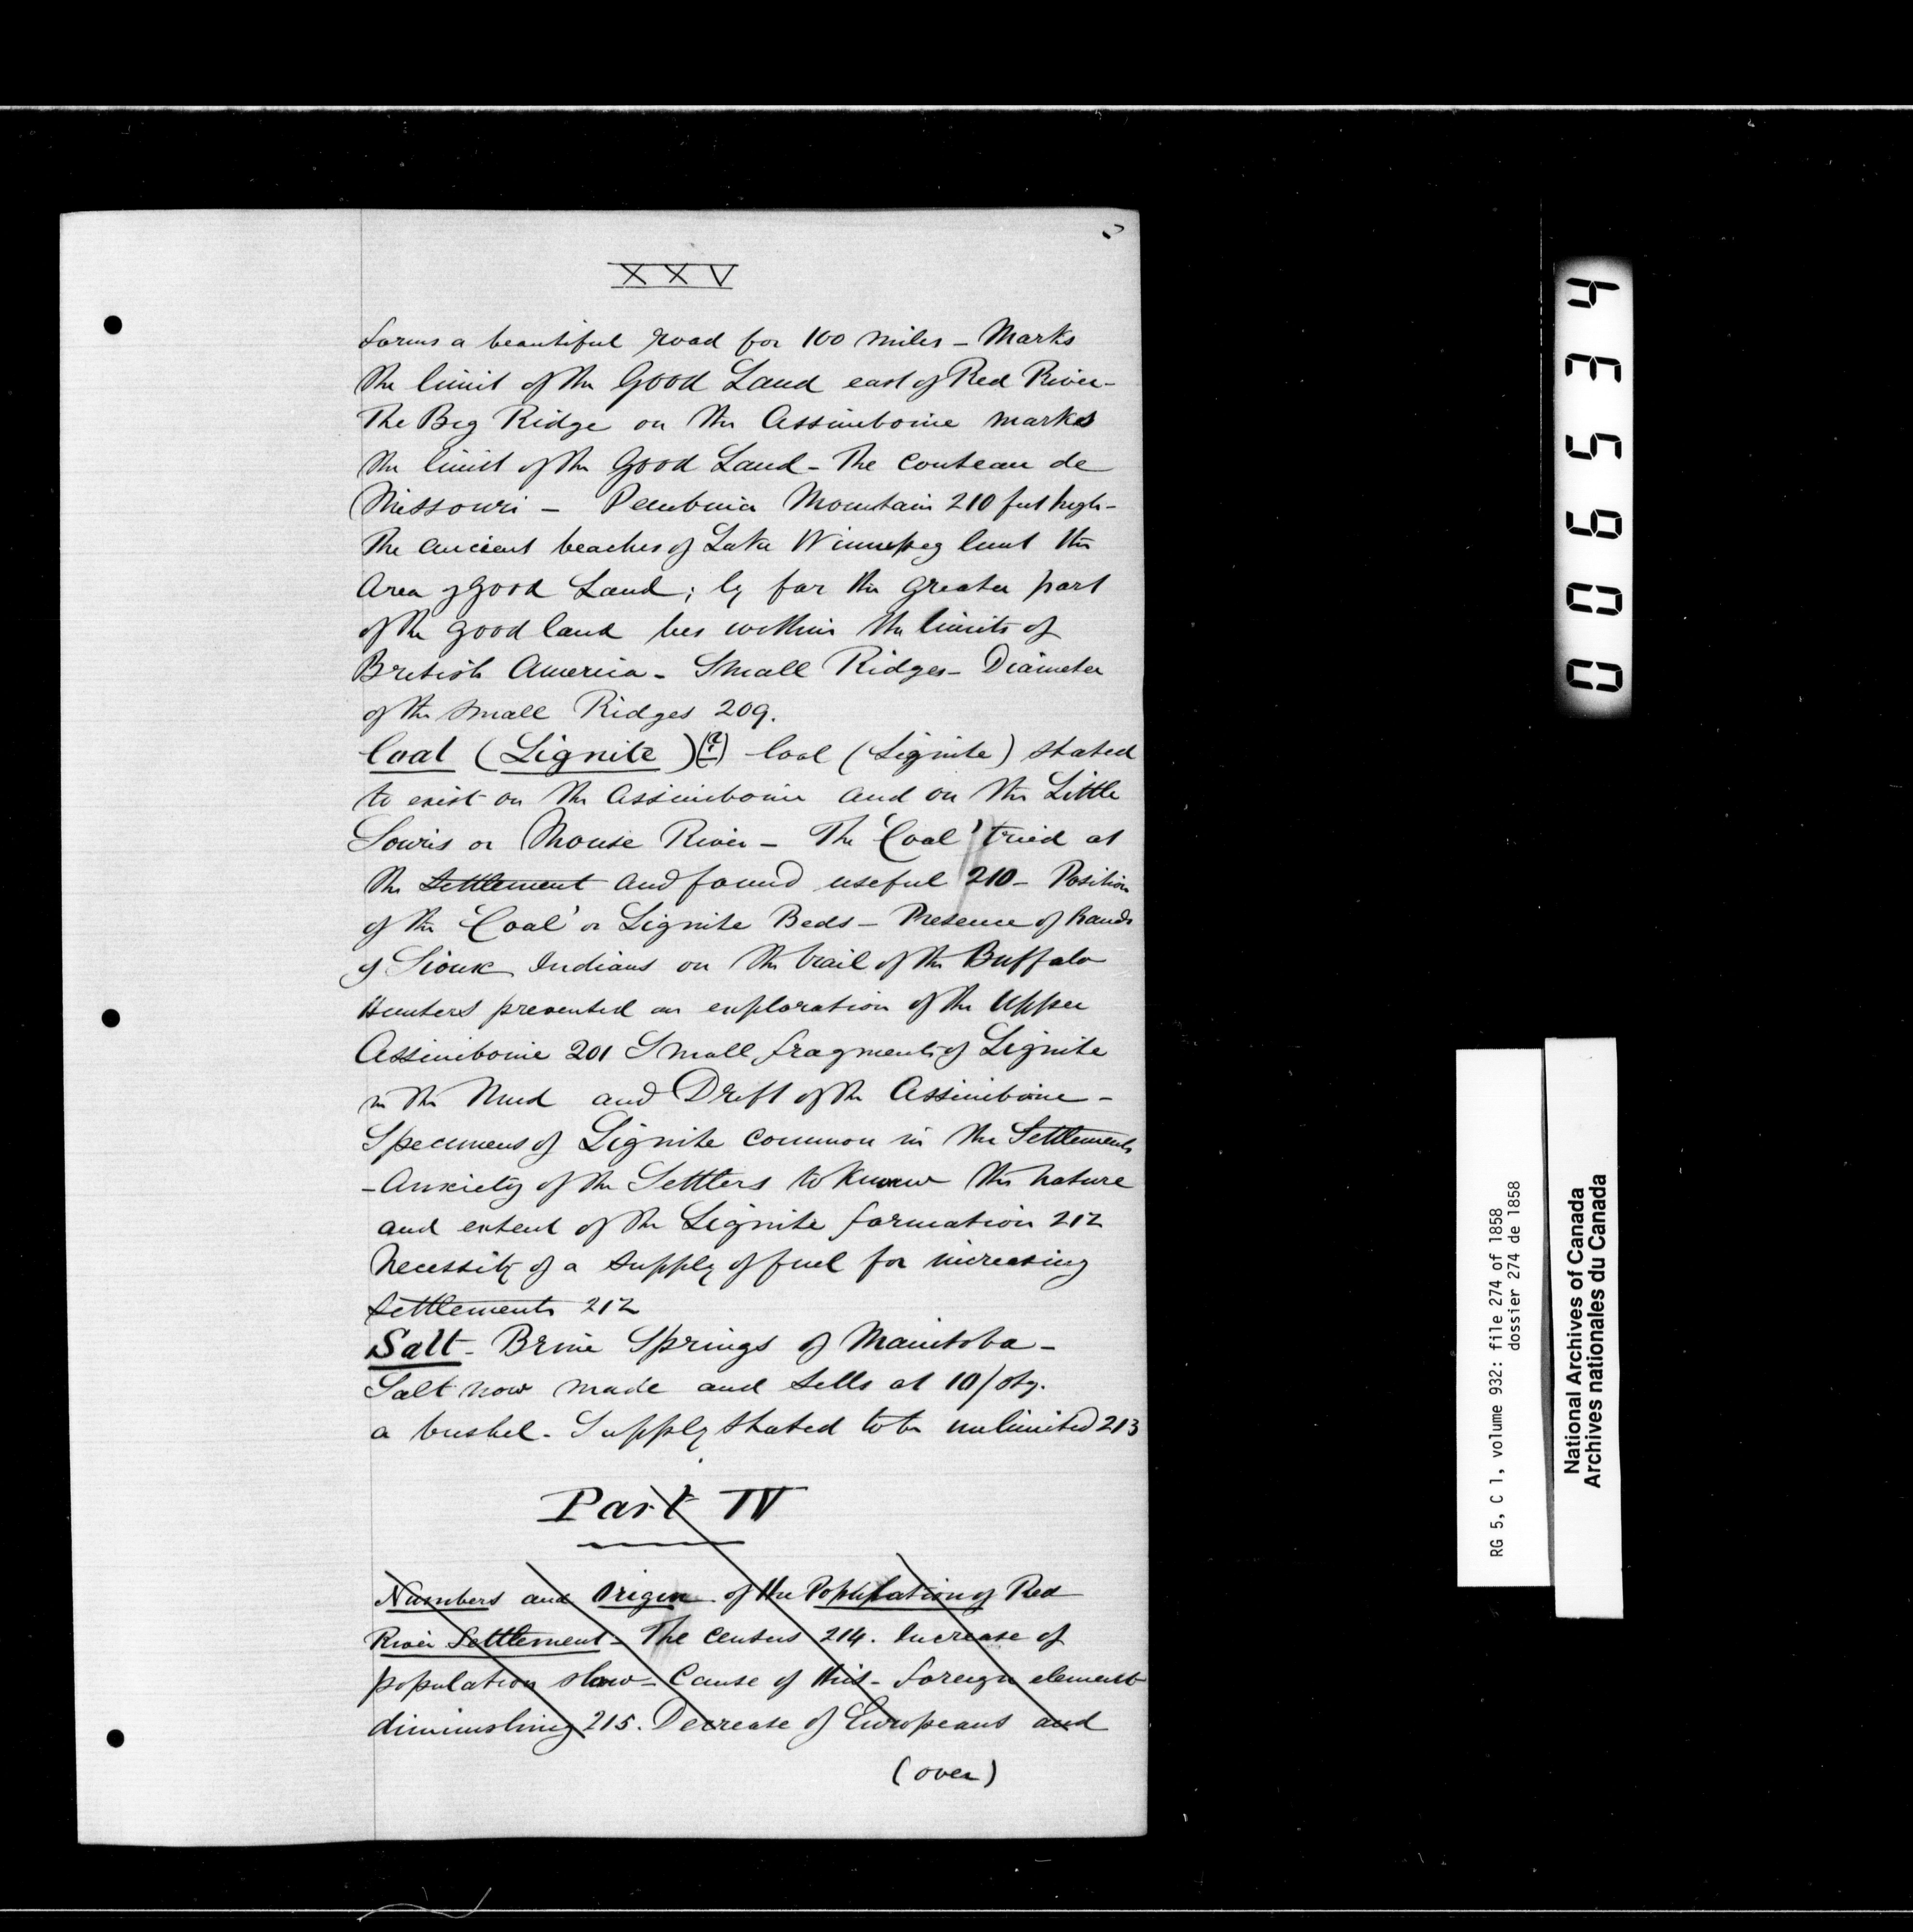 XXV
forms a beautiful road for 100 miles – Marks
the limit of the Good Land east of Red River –
The Big Ridge on the Assiniboine marks
the limit of the Good Land – The Couteau de
Missouri – Pembina Mountain 210 feet high –
The ancient beaches of Lake Winnipeg limit the
Area of good Land; by far the greater part
of the good land lies within the limits of
British America – Small Ridges – Diameter
of the small Ridges 209.
Coal (Lignite) (?) Coal (Lignite) stated
to exist on the Assiniboine and on the Little
Souris or Mouse River – The 'Coal' tried at
the Settlement and found useful 210 – Position
of the 'Coal' or Lignite Beds – Presence of bands
of Sioux Indians on the trail of the Buffalo
Hunters prevented an exploration of the Upper
Assiniboine 201 Small fragments of Lignite
in the Mud and Drift of the Assiniboine –
Specimens of Lignite common in the Settlements
– Anxiety of the Settlers to know the nature
and extent of the Lignite formation 212
Necessity of a supply of fuel for increasing
Settlements 212
Salt – Brine Springs of Manitoba –
Salt now made and sells at 10/stg.
a bushel – Supply stated to be unlimited 213
Part IV
Numbers and Origin of the Population of Red
River Settlement – The Census 214. Increase of
population slow – Cause of this – foreign element
diminishing 215. Decrease of Europeans and
(over)
006534
RG 5, C 1, volume 932: file 274 of 1858
dossier 274 de 1858
National Archives of Canada
Archives nationales du Canada